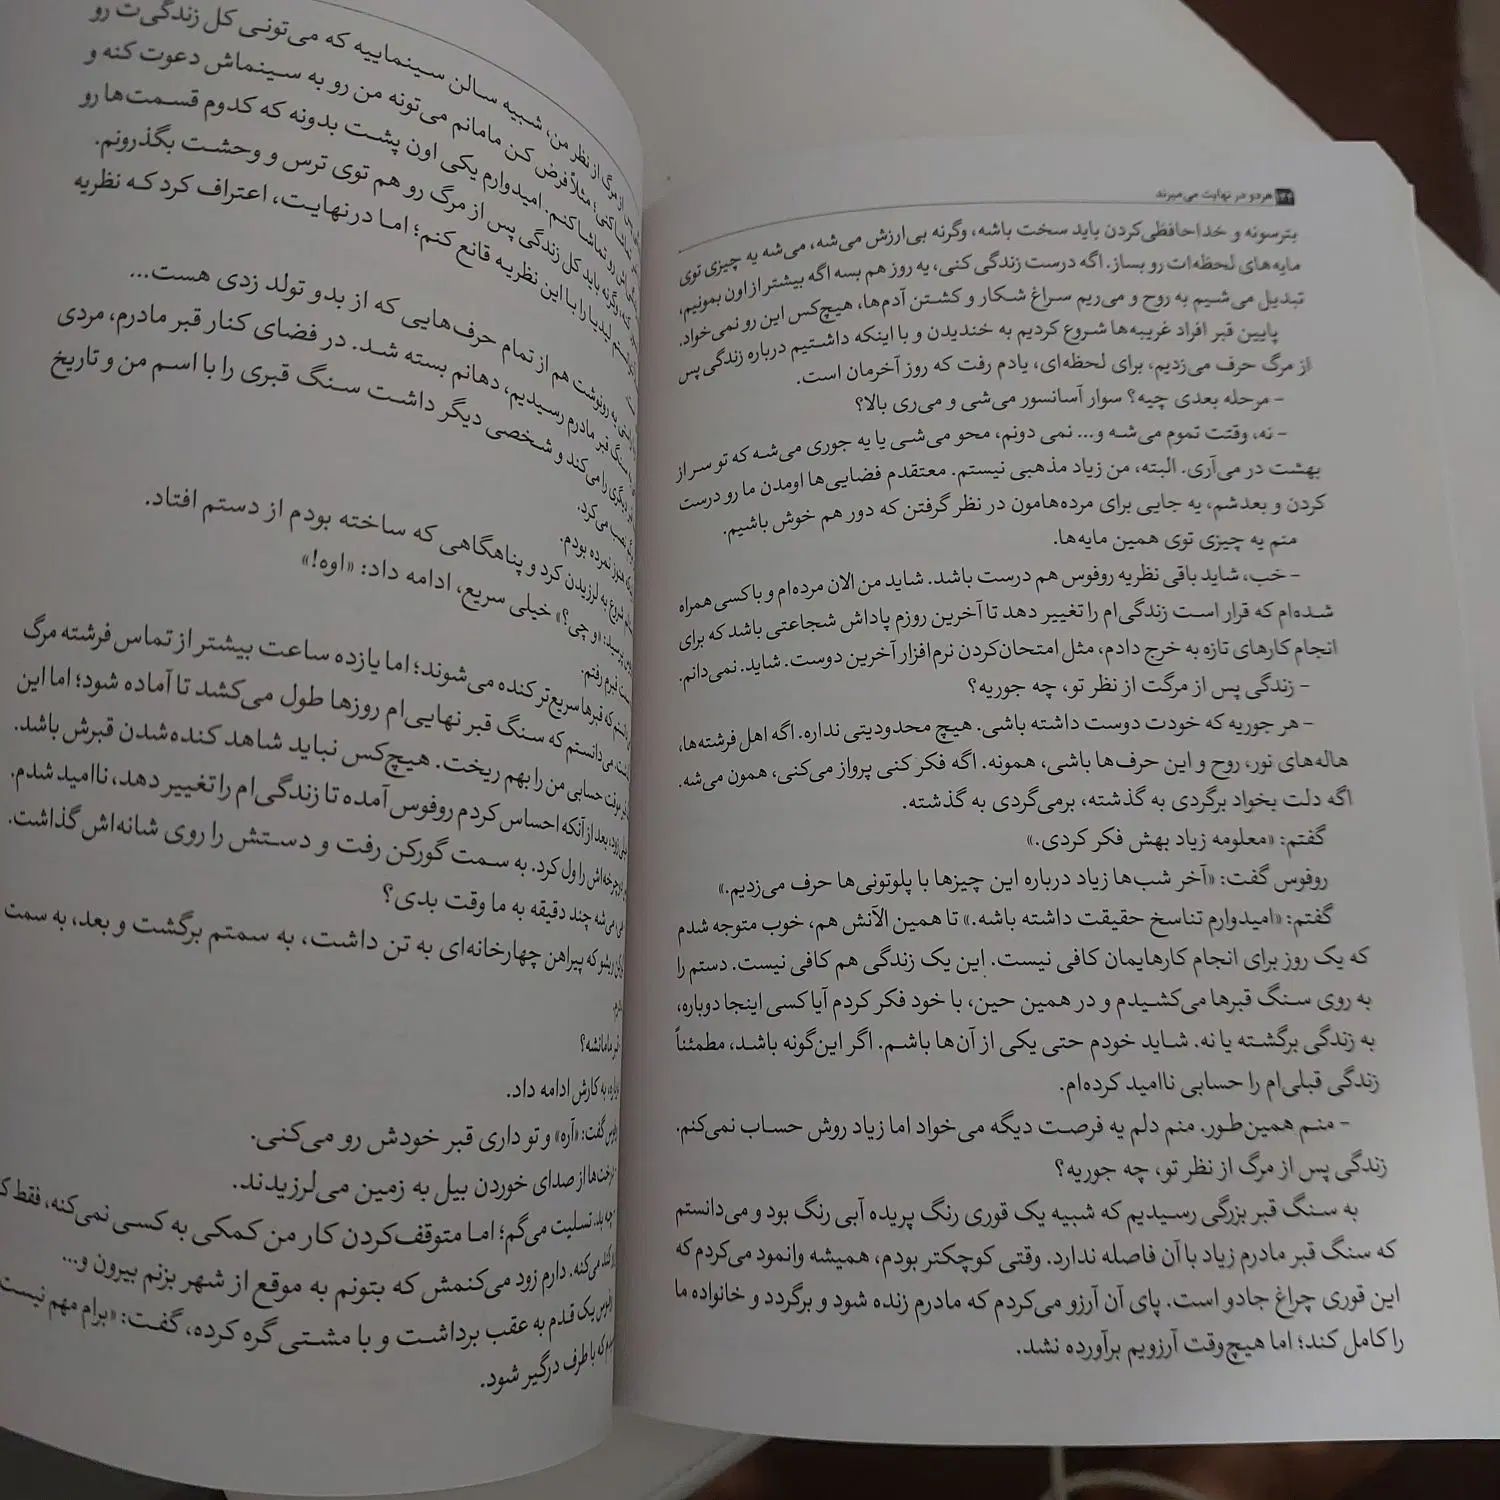 هردو در نهایت می‌میرند
بترسونه و خداحافظی‌کردن باید سخت باشه، وگرنه بی‌ارزش می‌شه، می‌شه یه چیزی توی
مایه‌های لحظه‌ات رو بساز. اگه درست زندگی کنی، یه روز هم بسه اگه بیشتر از اون بمونیم،
تبدیل می‌شیم به روح و می‌ریم سراغ شکار و کشتن آدم‌ها، هیچ‌کس این رو نمی‌خواد.
پایین قبر افراد غریبه‌ها شروع کردیم به خندیدن و با اینکه داشتیم درباره زندگی پس
از مرگ حرف می‌زدیم، برای لحظه‌ای، یادم رفت که روز آخرمان است.
- مرحله بعدی چیه؟ سوار آسانسور می‌شی و می‌ری بالا؟
- نه، وقتت تموم می‌شه و... نمی دونم، محو می‌شی یا یه جوری می‌شه که تو سر از
بهشت در می‌آری. البته، من زیاد مذهبی نیستم. معتقدم فضایی‌ها اومدن ما رو درست
کردن و بعدشم، یه جایی برای مرده‌هامون در نظر گرفتن که دور هم خوش باشیم.
منم یه چیزی توی همین مایه‌ها.
- خب، شاید باقی نظریه روفوس هم درست باشد. شاید من الان مرده‌ام و با کسی همراه
شده‌ام که قرار است زندگی‌ام را تغییر دهد تا آخرین روزم پاداش شجاعتی باشد که برای
انجام کارهای تازه به خرج دادم، مثل امتحان‌کردن نرم‌افزار آخرین دوست. شاید. نمی‌دانم.
- زندگی پس از مرگت از نظر تو، چه جوریه؟
- هر جوریه که خودت دوست داشته باشی. هیچ محدودیتی نداره. اگه اهل فرشته‌ها،
هاله‌های نور، روح و این حرف‌ها باشی، همونه. اگه فکر کنی پرواز می‌کنی، همون می‌شه.
اگه دلت بخواد برگردی به گذشته، برمی‌گردی به گذشته.
گفتم: «معلومه زیاد بهش فکر کردی.»
روفوس گفت: «آخر شب‌ها زیاد درباره این چیزها با پلوتونی‌ها حرف می‌زدیم.»
گفتم: «امیدوارم تناسخ حقیقت داشته باشه.» تا همین الآنش هم، خوب متوجه شدم
که یک روز برای انجام کارهایمان کافی نیست. این یک زندگی هم کافی نیست. دستم را
به روی سنگ قبرها می‌کشیدم و در همین حین، با خود فکر کردم آیا کسی اینجا دوباره،
به زندگی برگشته یا نه. شاید خودم حتی یکی از آن‌ها باشم. اگر این‌گونه باشد، مطمئناً
زندگی قبلی‌ام را حسابی ناامید کرده‌ام.
- منم همین‌طور. منم دلم یه فرصت دیگه می‌خواد اما زیاد روش حساب نمی‌کنم.
زندگی پس از مرگ از نظر تو، چه جوریه؟
به سنگ قبر بزرگی رسیدیم که شبیه یک قوری رنگ پریده آبی رنگ بود و می‌دانستم
که سنگ قبر مادرم زیاد با آن فاصله ندارد. وقتی کوچکتر بودم، همیشه وانمود می‌کردم که
این قوری چراغ جادو است. پای آن آرزو می‌کردم که مادرم زنده شود و برگردد و خانواده ما
را کامل کند؛ اما هیچ‌وقت آرزویم برآورده نشد.
از مرگ از نظر من، شبیه سالن سینماییه که می‌تونی کل زندگی‌ت رو
مثلاً فرض کن مامانم می‌تونه من رو به سینماش دعوت کنه و
رو تماشا کنم. امیدوارم یکی اون پشت بدونه که کدوم قسمت‌ها رو
وگرنه باید کل زندگی پس از مرگ رو هم توی ترس و وحشت بگذرونم.
لیدیا را با این نظریه قانع کنم؛ اما درنهایت، اعتراف کرد که نظریه
یه رونوشت هم از تمام حرف‌هایی که از بدو تولد زدی هست...
سنگ قبر مادرم رسیدیم، دهانم بسته شد. در فضای کنار قبر مادرم، مردی
دیگری را می‌کند و شخصی دیگر داشت سنگ قبری را با اسم من و تاریخ
نصب می‌کرد.
هنوز نمرده بودم.
شروع به لرزیدن کرد و پناهگاهی که ساخته بودم از دستم افتاد.
«و چی؟» خیلی سریع، ادامه داد: «اوه!»
قبرم رفتم.
که قبرها سریع‌تر کنده می‌شوند؛ اما یازده ساعت بیشتر از تماس فرشته مرگ
می‌دانستم که سنگ قبر نهایی‌ام روزها طول می‌کشد تا آماده شود؛ اما این
موقت حسابی من را بهم ریخت. هیچ‌کس نباید شاهد کنده‌شدن قبرش باشد.
بعد از آنکه احساس کردم روفوس آمده تا زندگی‌ام را تغییر دهد، ناامید شدم.
را ول کرد. به سمت گورکن رفت و دستش را روی شانه‌اش گذاشت.
می‌شه چند دقیقه به ما وقت بدی؟
که پیراهن چهارخانه‌ای به تن داشت، به سمتم برگشت و بعد، به سمت
مامانشه؟
به کارش ادامه داد.
گفت: «آره» و تو داری قبر خودش رو می‌کنی.
از صدای خوردن بیل به زمین می‌لرزیدند.
تسلیت می‌گم؛ اما متوقف‌کردن کار من کمکی به کسی نمی‌کنه، فقط
می‌کنه. دارم زود می‌کنمش که بتونم به موقع از شهر بزنم بیرون و...
یک قدم به عقب برداشت و با مشتی گره کرده، گفت: «برام مهم نیست
که با طرف درگیر شود.